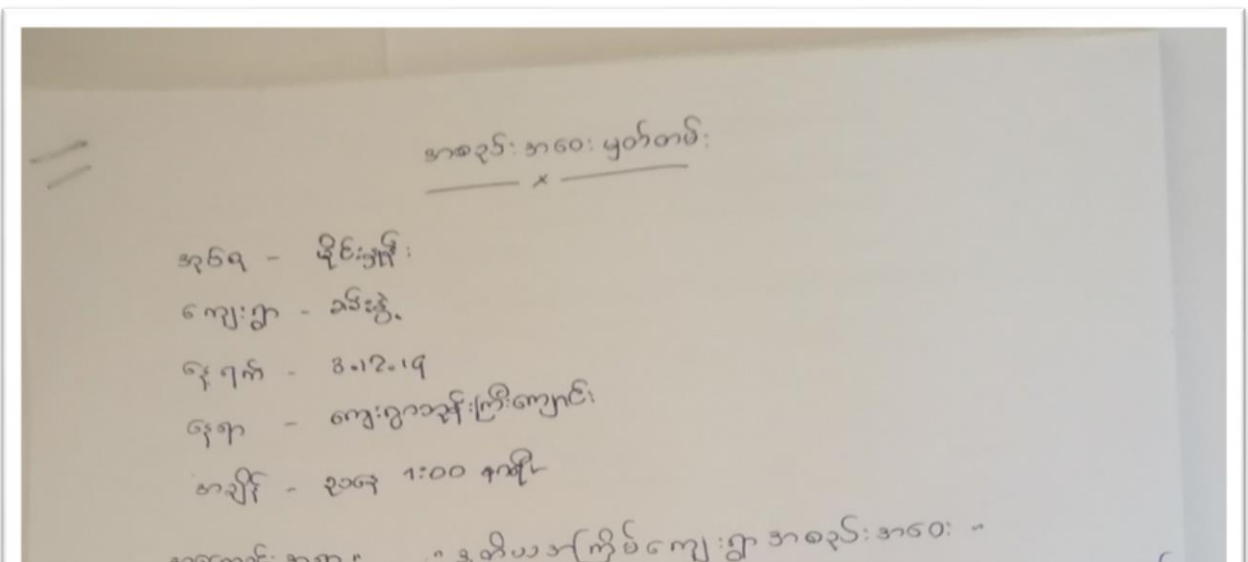 အစည်းအဝေး မှတ်တမ်း
အုပ်စု - နိုင်းရှိန်း
ကျေးရွာ - ခမ်းနွဲ့
နေ့ရက် - 3.12.19
နေရာ - ကျေးရွာဘုန်းကြီးကျောင်း
အချိန် - ညနေ 1:00 နာရီ
အကြောင်းအရာ " ဒုတိယအကြိမ်ကျေးရွာ အစည်းအဝေး "